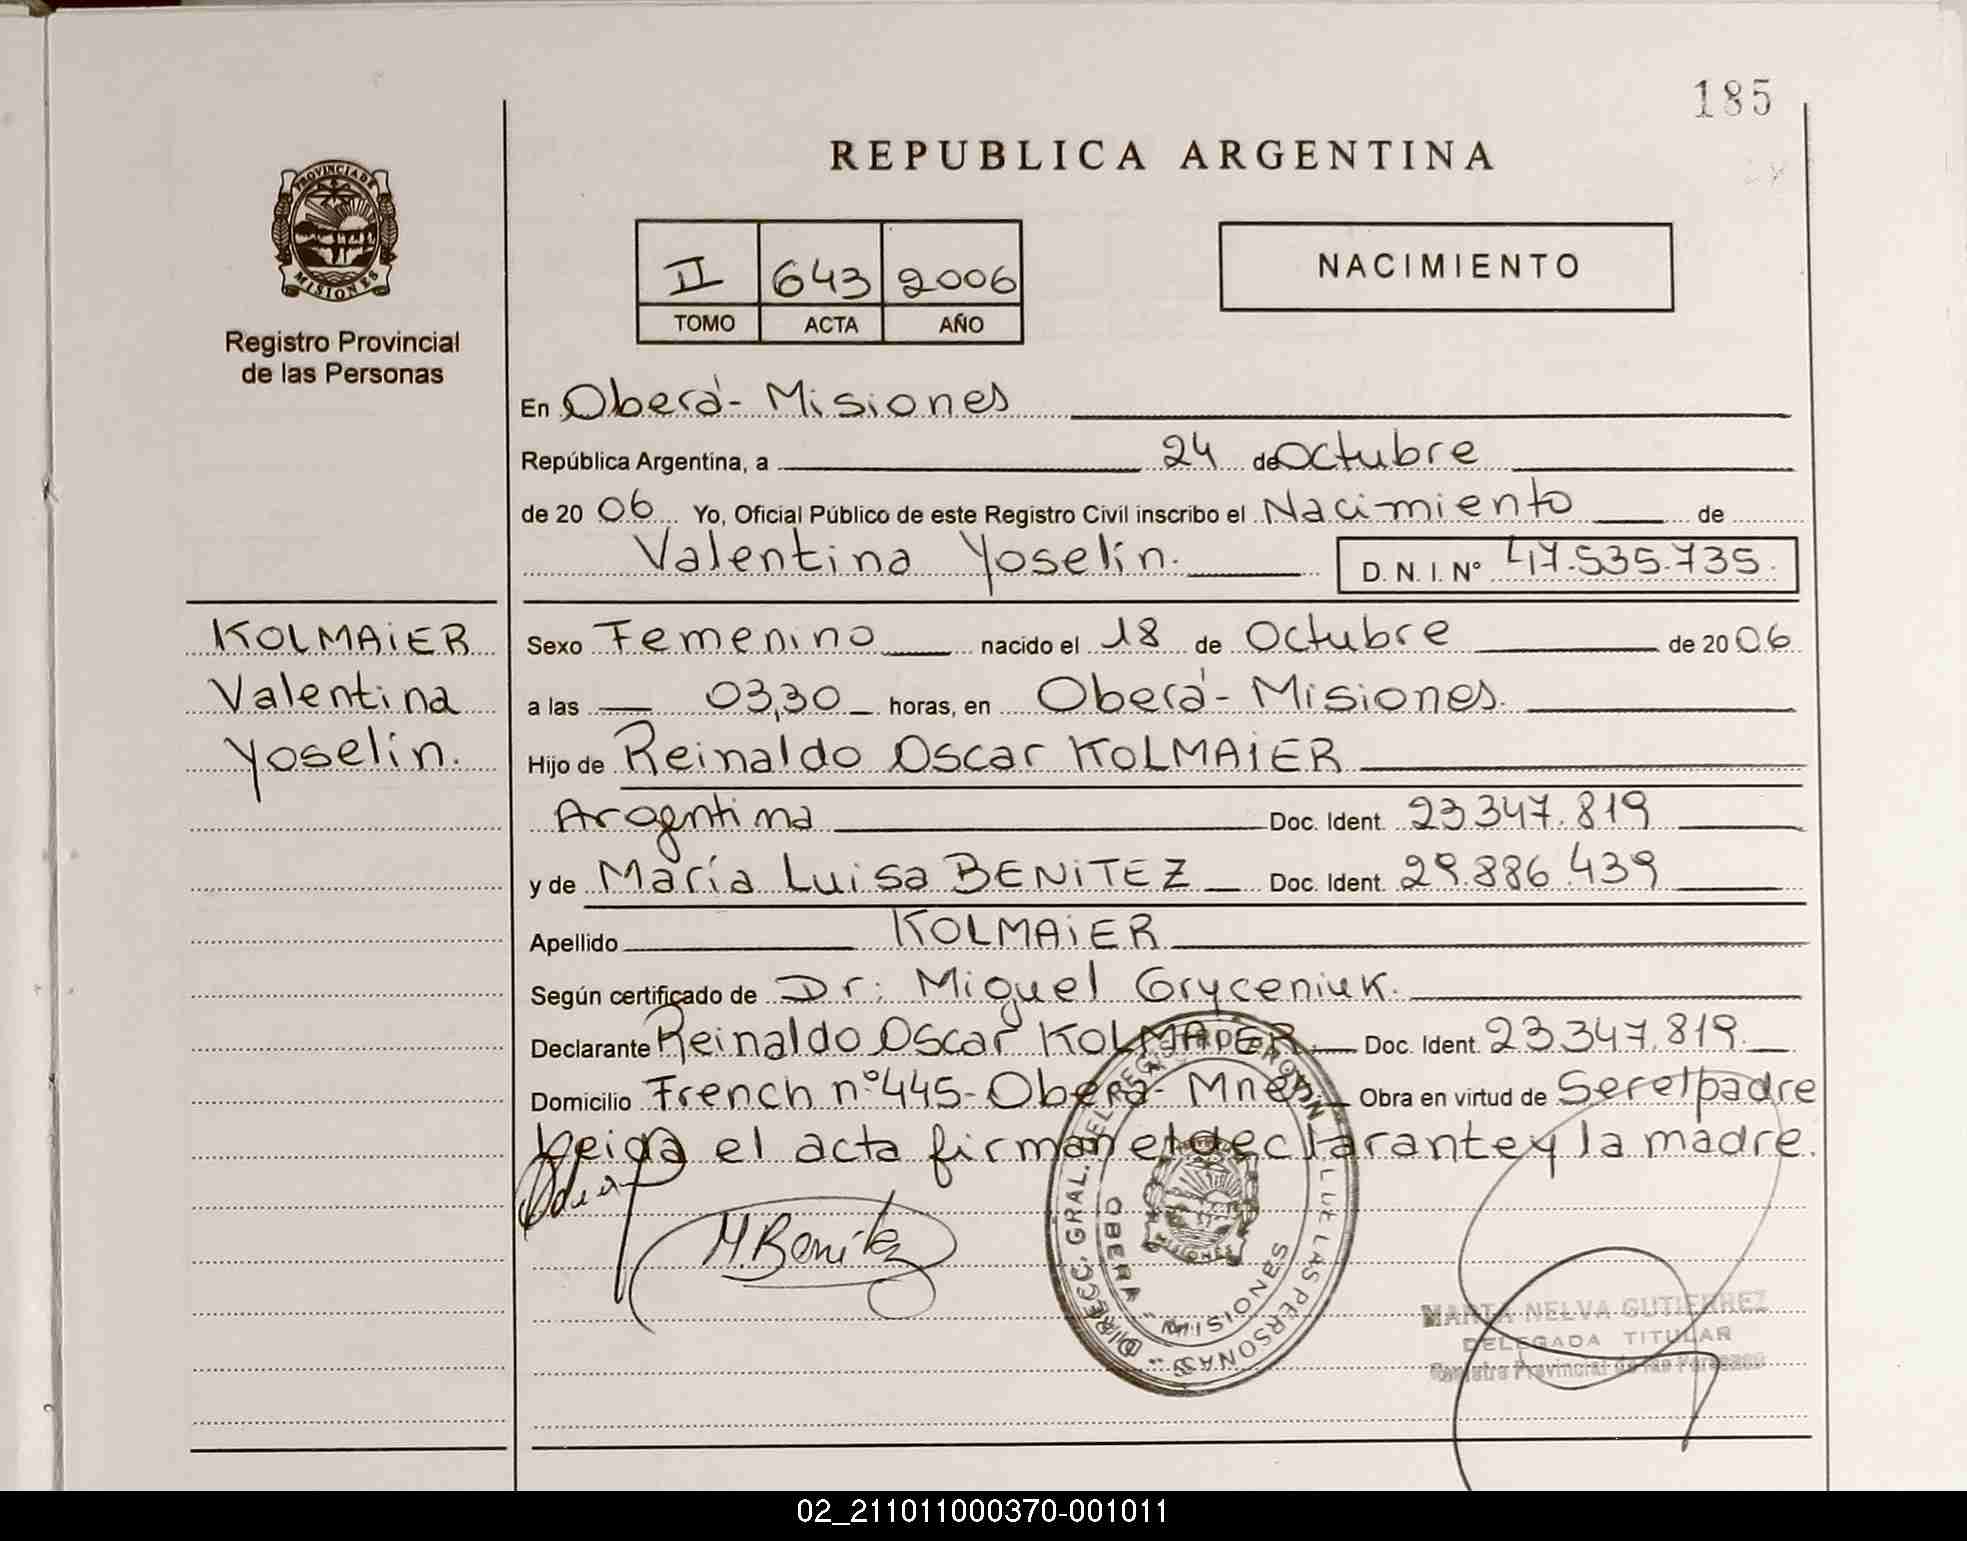 185
REPUBLICA ARGENTINA
PROVINCIA DE
MISIONES
Registro Provincial
de las Personas
II 643 2006
TOMO ACTA AÑO
NACIMIENTO
En Oberá - Misiones
República Argentina, a 24 de Octubre
de 20 06 Yo, Oficial Público de este Registro Civil inscribo el Nacimiento de
Valentina Yoselín. D. N. I. Nº 47.535.735.
KOLMAiER
Valentina
Yoselín.
Sexo Femenino nacido el 18 de Octubre de 20 06
a las 03,30 horas, en Oberá - Misiones.
Hijo de Reinaldo Oscar KOLMAiER
Argentina Doc. Ident. 23.347.819
y de María Luisa BENiTEZ Doc. Ident. 29.886.439
Apellido KOLMAiER
Según certificado de Dr: Miguel Gryceniuk.
Declarante Reinaldo Oscar KOLMAiER. Doc. Ident. 23.347.819.
Domicilio French nº 445 - Oberá - Mnes. Obra en virtud de Ser el padre
Leida el acta firman el declarante y la madre.
M. Benitez
DIRECC. GRAL. DEL REGIST. PROVIN. DE LAS PERSONAS
OBERA - MISIONES
MISIONES
MARTA NELVA GUTIERREZ
DELEGADA TITULAR
Registro Provincial de las Personas
02_211011000370-001011